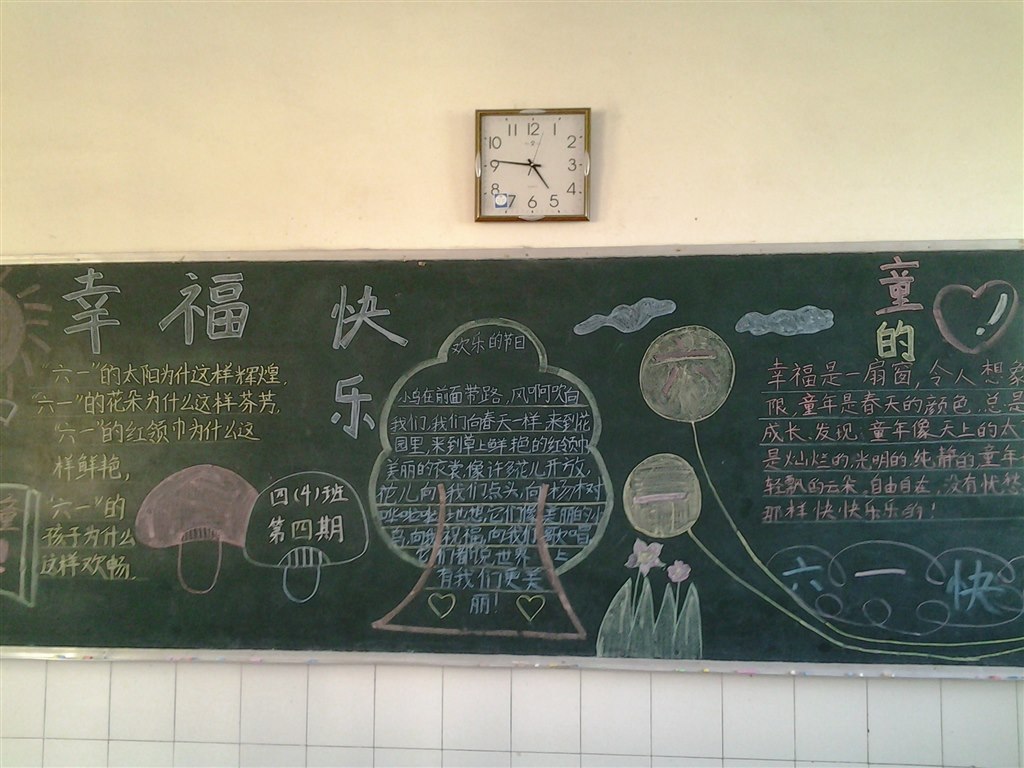 11 12 1
10 2
9 3
8 4
7 6 5
幸福快乐
童的
"六一"的太阳为什这样辉煌,
"六一"的花朵为什么这样芬芳,
"六一"的红领巾为什么这
样鲜艳,
"六一"的
孩子为什么
这样欢畅.
四(4)班
第四期
欢乐的节日
小鸟在前面带路,风啊吹向
我们,我们向春天一样,来到花
园里,来到草上鲜艳的红领巾
美丽的衣裳像许多花儿开放,
花儿向我们点头,向杨树
它们像美丽的小
鸟,向我祝福,向我们歌唱
它们都说世界上
有我们更美
丽!
六
一
幸福是一扇窗,令人想象
限,童年是春天的颜色,总是
成长、发现,童年像天上的太
是灿烂的,光明的,纯静的,童年
轻飘的云朵,自由自在,没有忧愁
那样快快乐乐的!
六一快